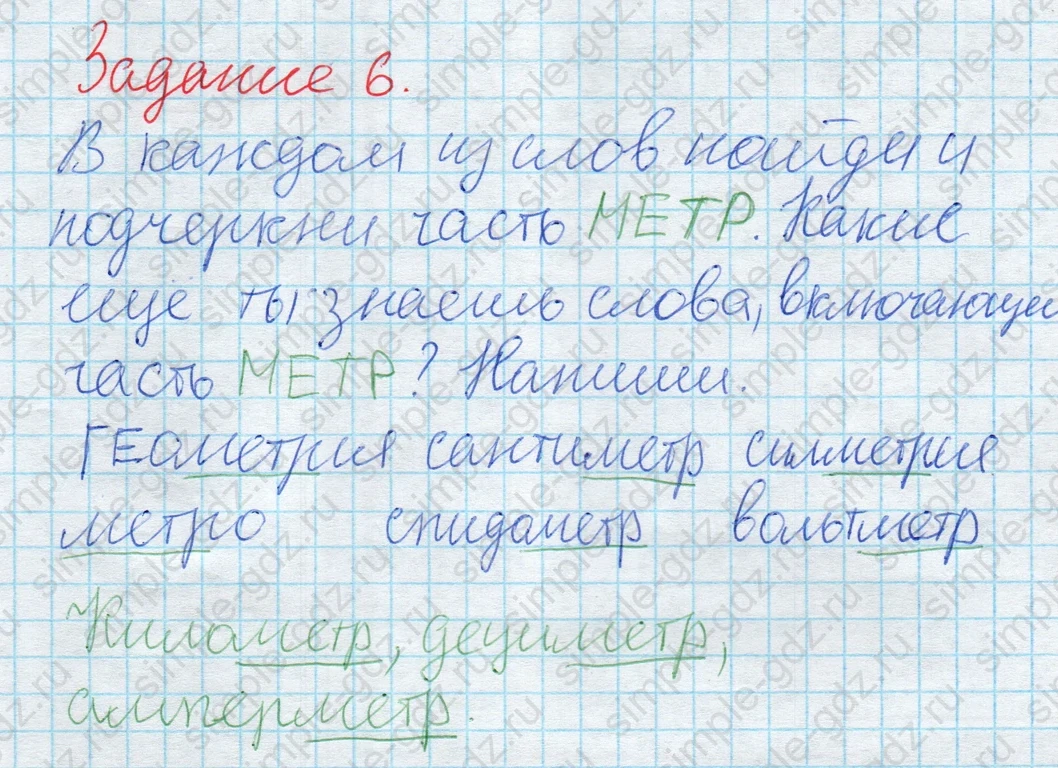 Задание 6.
В каждом из слов найди и
подчеркни часть МЕТР. Какие
еще ты знаешь слова, включающие
часть МЕТР? Напиши.
ГЕометрия сантиметр симметрия
метро спидометр вольтметр
Километр, дециметр,
амперметр.
simple-gdz.ru